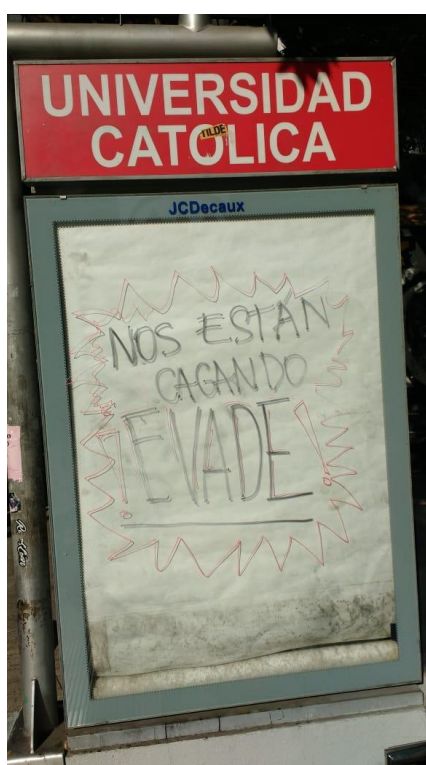 UNIVERSIDAD
CATOLICA
TILDE
JCDecaux
NOS ESTÁN
CAGANDO
¡EVADE!